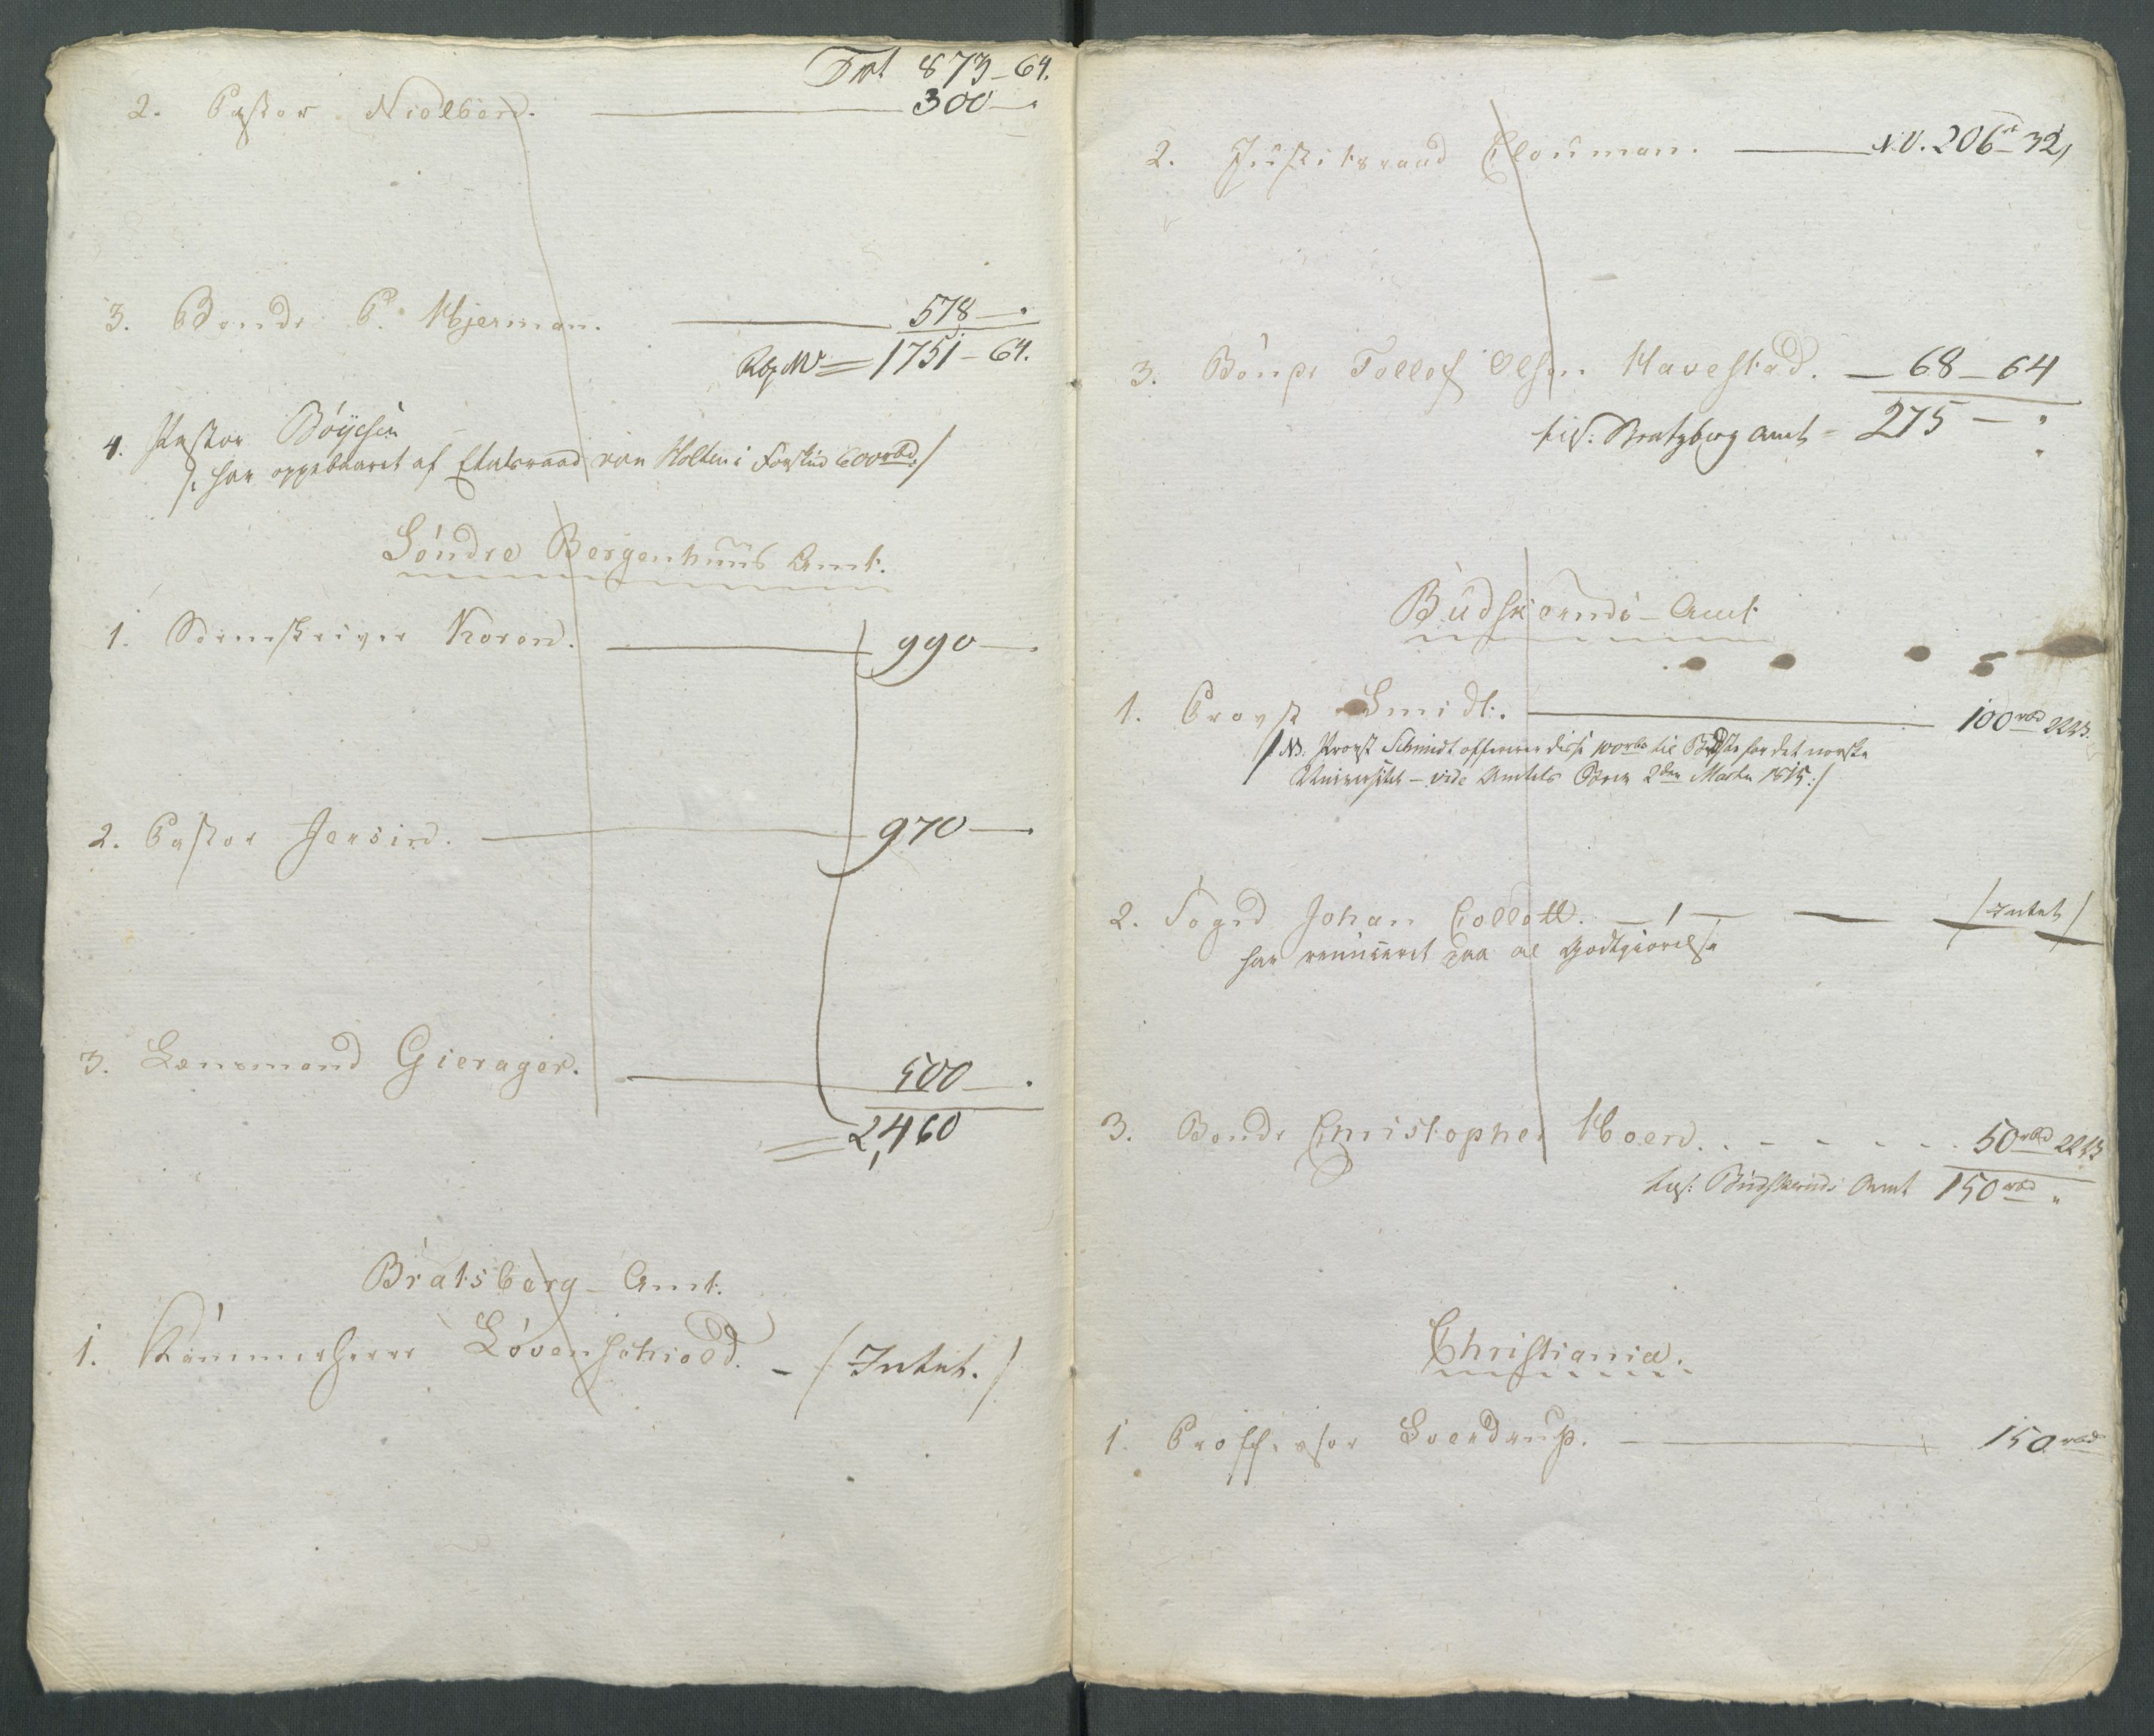 Trt 873-64.
2. Pastor Nielsen. 300-"
3. Bonde P. Hjerman. 578-"
Rbd NV = 1751-64.
4. Pastor Bøyesen
/: har oppebaaret af Etatsraad von Holten i Forskud 600 rbd :/
Söndre Bergenhuus Amt.
1. Sorenskriver Koren. 990-.
2. Pastor Jersin. 970-.
3. Lænsmand Gierager. 500-.
= 2,460
Bratsberg-Amt.
1. Kammerherre Lövenschiold. - /: Intet. /
2. Justitsraad Clouman. N.V. 206 r 32,
3. Bonde Tollef Olsen Havestad. - 68-64
tils: Bratzberg Amt - 275 - "
Budskeruds-Amt
1. Provst Smidt. 100 rbd
/: NB. Provst Schmidt offererer disse 100 rbd til Bedste for det norske
Universitet - vide Amtets Brev 2den Marts 1815 :/
2. Foged Johan Collett. /Intet/
har renunceret paa al Godtgiörelse
3. Bonde Christopher Hoen. 50 rbd
tils: Budskeruds Amt 150 rbd "
Christiania.
1. Proffessor Sverdrup. 150 rbd